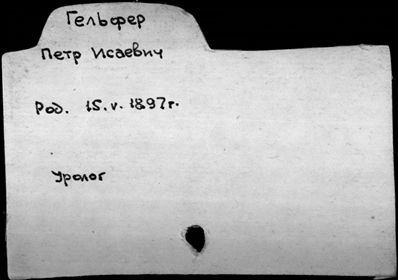 Гельфер
Петр Исаевич
Род. 15.v.1897г.
Уролог